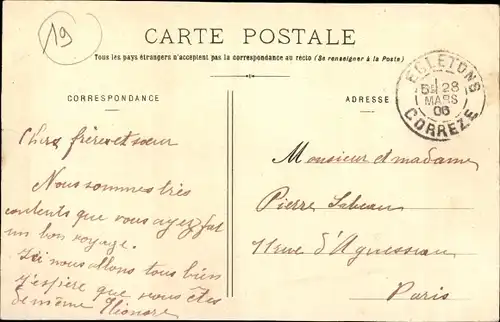 19
CARTE POSTALE
Tous les pays étrangers n'acceptent pas la correspondance au recto (Se renseigner à la Poste)
CORRESPONDANCE
ADRESSE
EGLETONS
28
MARS
06
CORREZE
Chers frère et sœur
Nous sommes très
contents que vous ayez fait
un bon voyage.
Ici nous allons tous bien
J'espère que vous êtes
de même Eléonore
Monsieur et madame
Pierre
11 rue d'Aguesseau
Paris